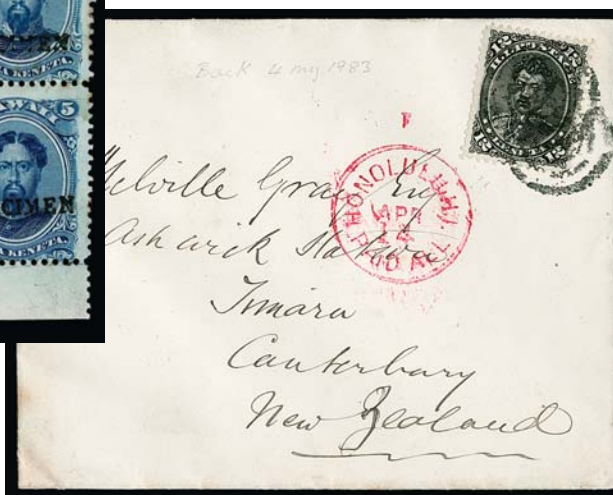 SPECIMEN
WAII 5
CIMEN
A KENETA.
Back 4 my 1983
12 12
HONOLULU H.I.
APR
14
PAID ALL
Melville Gray Esq
Ashwick Station
Timaru
Canterbury
New Zealand